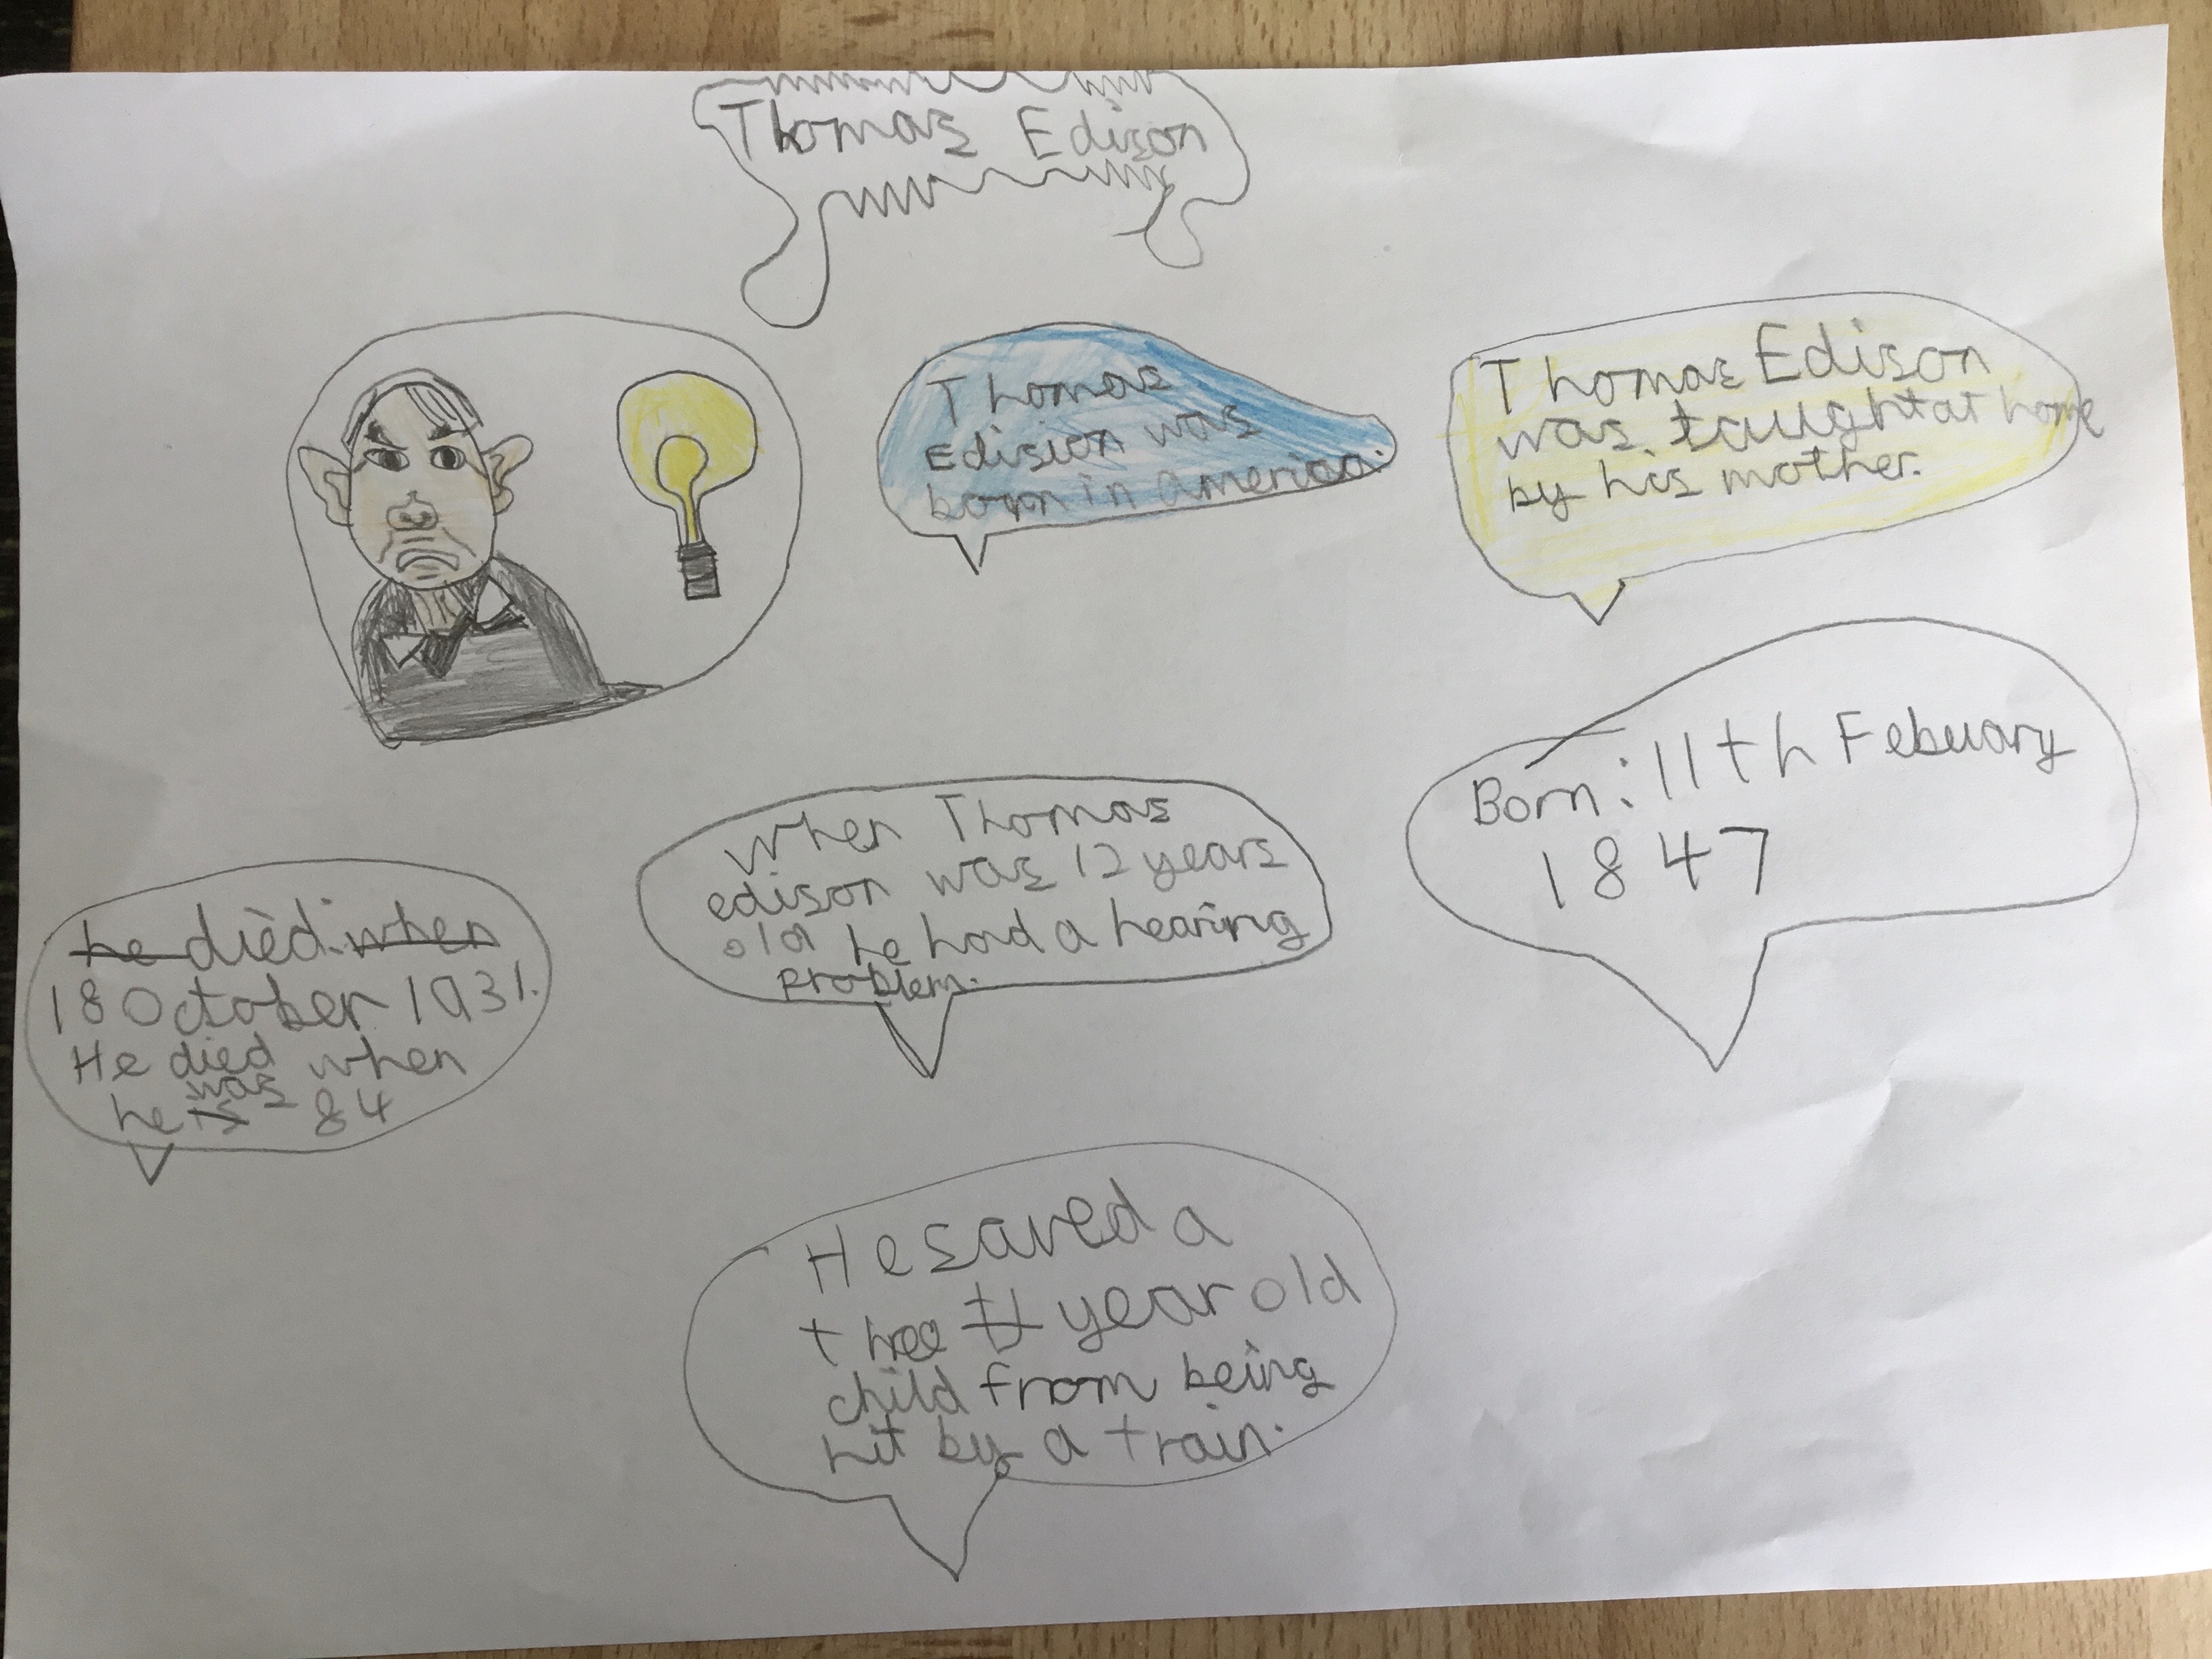 Thomas Edison
Thomas
Edision was
born in America.
Thomas Edison
was taught at home
by his mother.
Born: 11th Febuary
1847
When Thomas
edison was 12 years
old he had a hearing
problem.
he died: when
18 October 1931.
He died when
was
he is 84
He saved a
three year old
child from being
hit by a train.